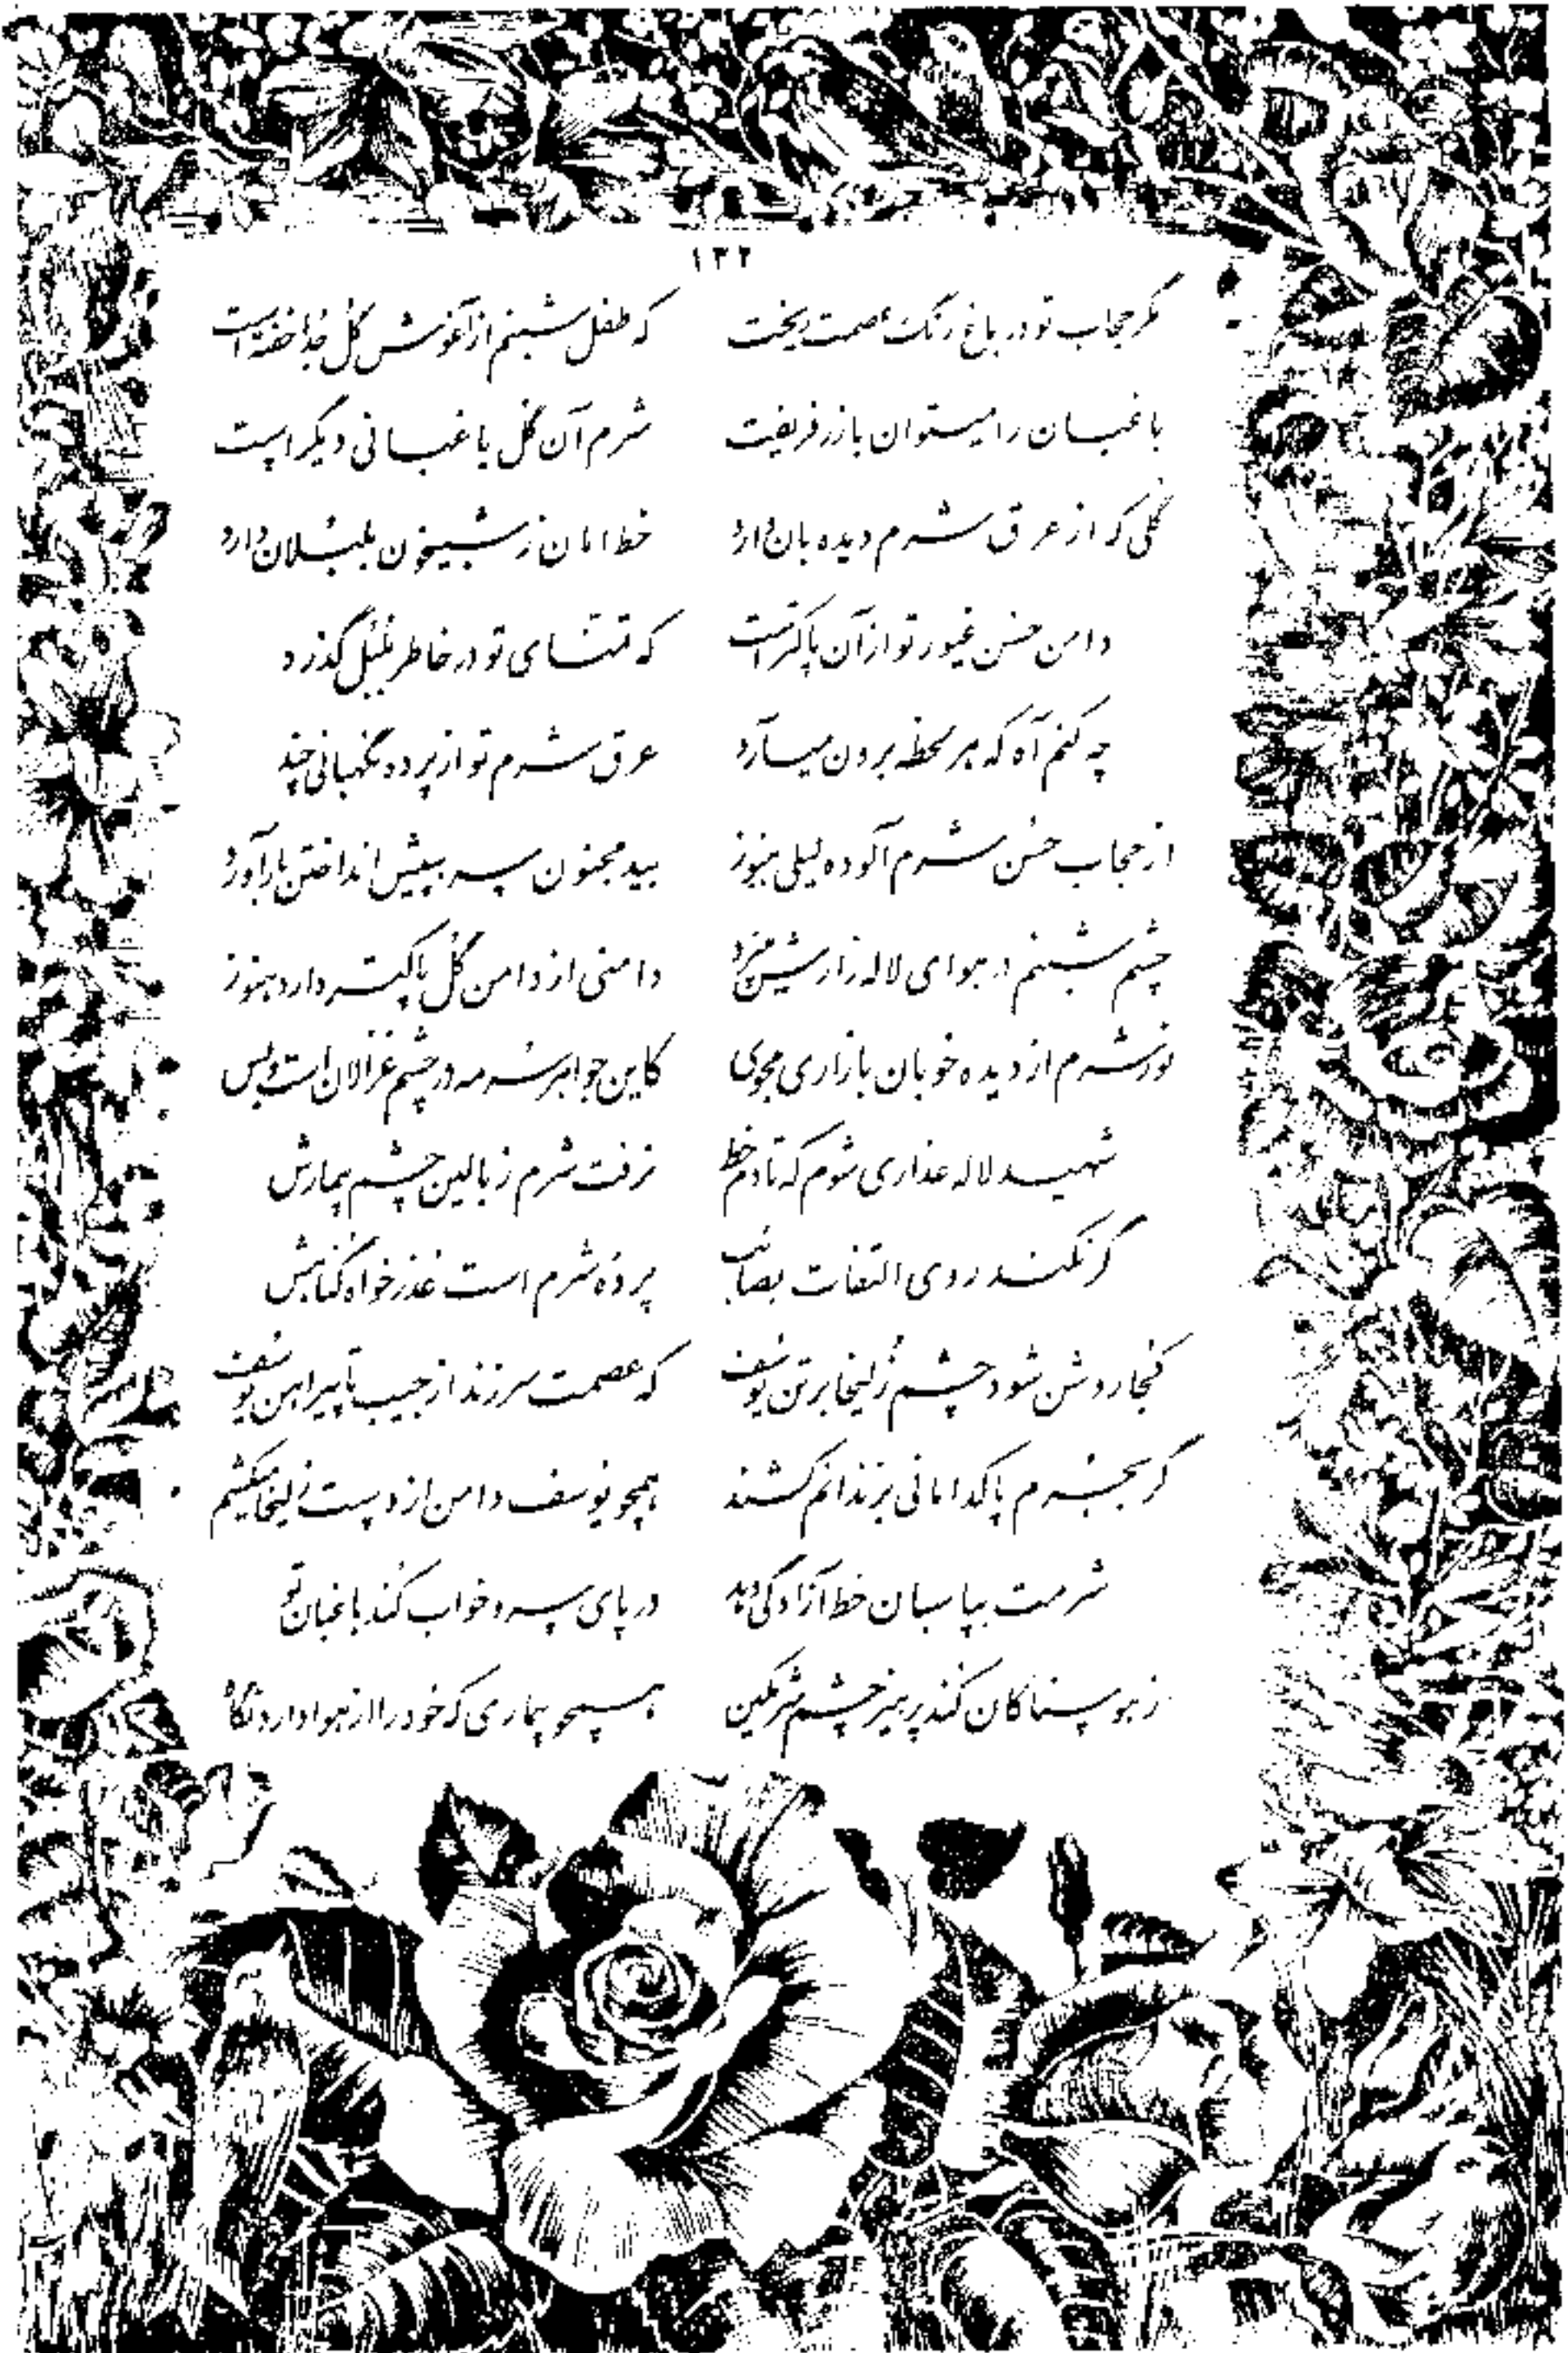 ۱۳۲
مگر حجاب تو در باغ رنگ عصمت ریخت که طفل شبنم از آغوش گل جدا خفته است
باغبان را میتوان با زر فریفت شرم آن گل باغبانی دیگر است
گلی که از عرق شرم دیده بان دارد خط امان ز شبیخون بلبلان دارد
دامن حسن غیور تو از آن پاکتر است که تمنای تو در خاطر بلبل گذرد
چه کنم آه که هر لحظه برون میآرد عرق شرم تو از پرده نگهبانی چند
از حجاب حسن شرم آلوده لیلی هنوز بید مجنون سر بپیش انداختن بار آورد
چشم شبنم در هوای لاله زارش میپرد دامنی از دامن گل پاکتر دارد هنوز
نور شرم از دیده خوبان بازاری مجوی کاین جواهر سرمه در چشم غزالان است و بس
شهید لاله عذاری شوم که تا دم خط نرفت شرم ز بالین چشم بیمارش
گر نکند روی التفات بصائب پرده شرم است عذرخواه گناهش
کجا روشن شود چشم زلیخا بر تن یوسف که عصمت سر زند از جیب تا پیراهن یوسف
گر بجرم پاکدامانی بزندانم کشند همچو یوسف دامن از دست زلیخا میکشم
شرمت بپاسبان خط آزادگی دهد در پای سرو خواب کند باغبان تو
ز بوسناکان کند پرهیز چشم شرمگین همچو بیماری که خود را از هوا دارد نگاه